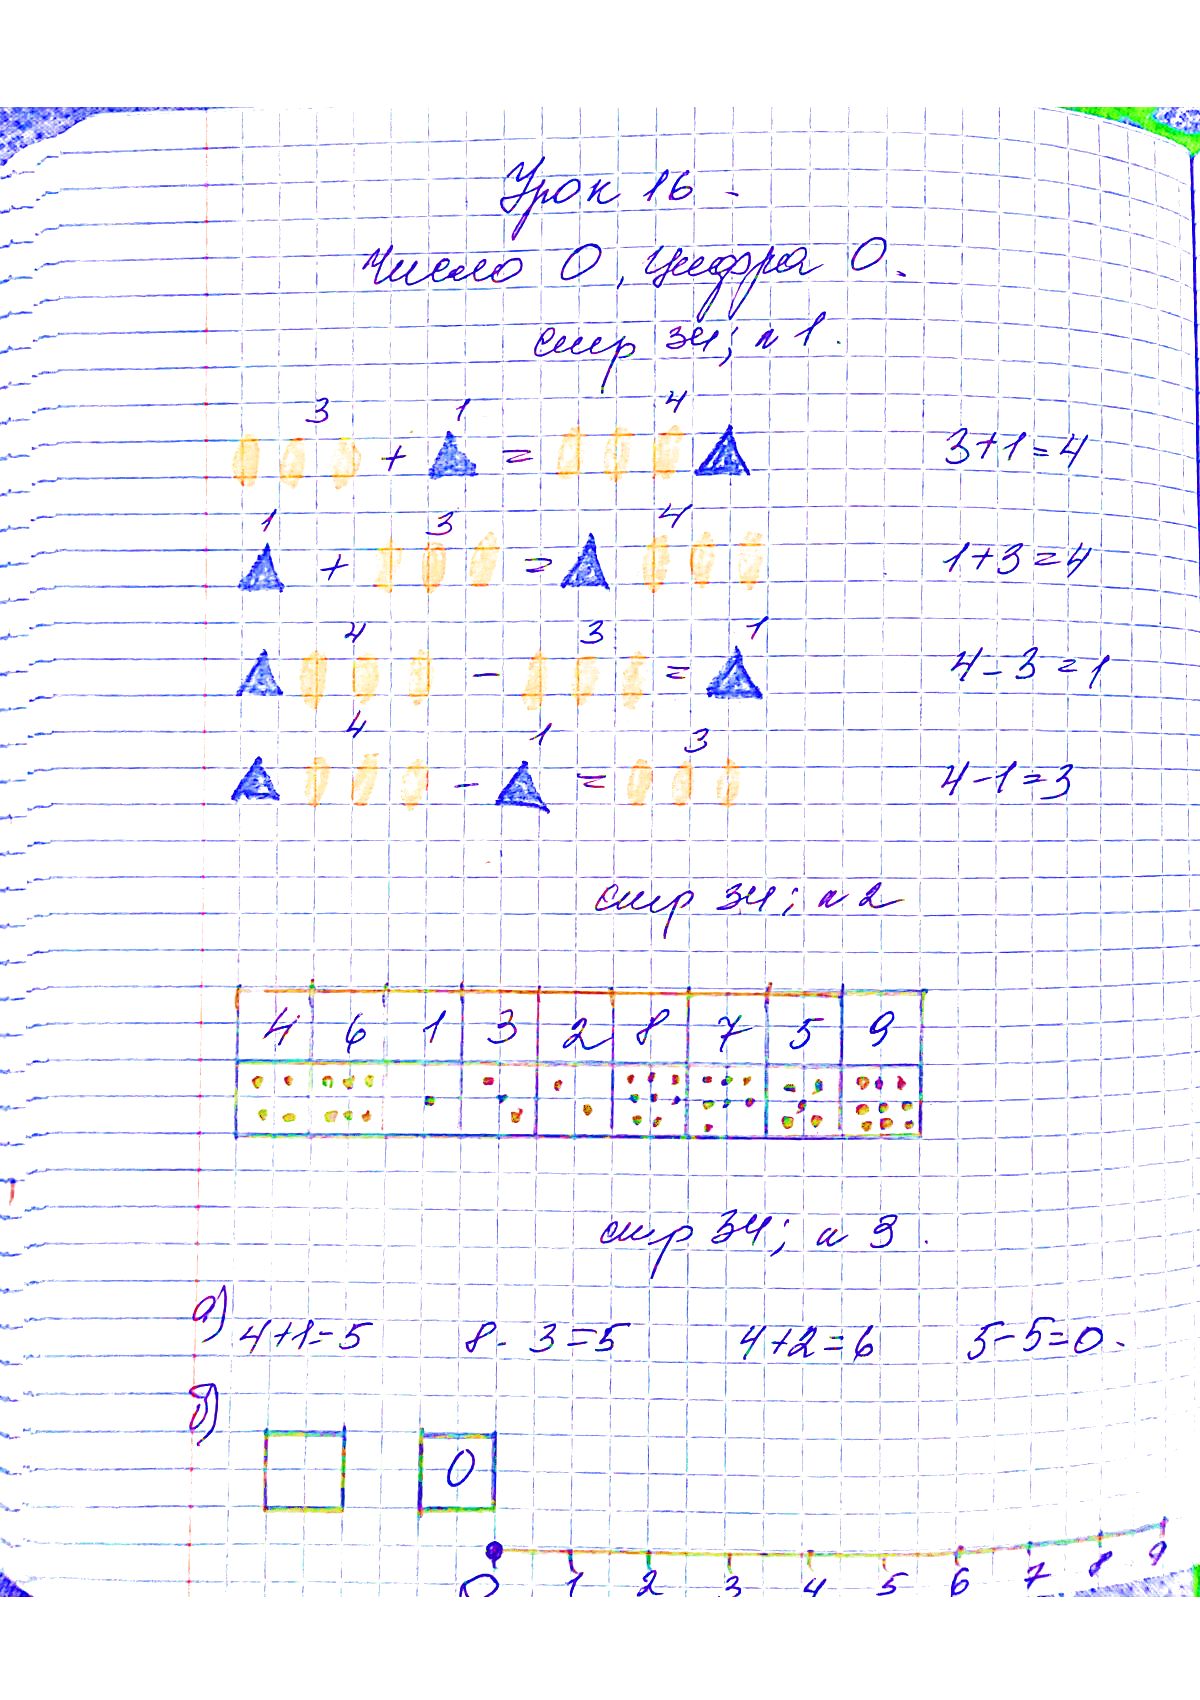 Урок 16.
Число 0, цифра 0.
стр 34; н 1.
3 1 4
+ = 3+1=4
1 3 4
+ = 1+3=4
4 3 1
- = 4-3=1
4 1 3
- = 4-1=3
стр 34; н 2
4 6 1 3 2 8 7 5 9
стр 34; н 3.
а) 4+1=5 8-3=5 4+2=6 5-5=0.
б)
0
0 1 2 3 4 5 6 7 8 9